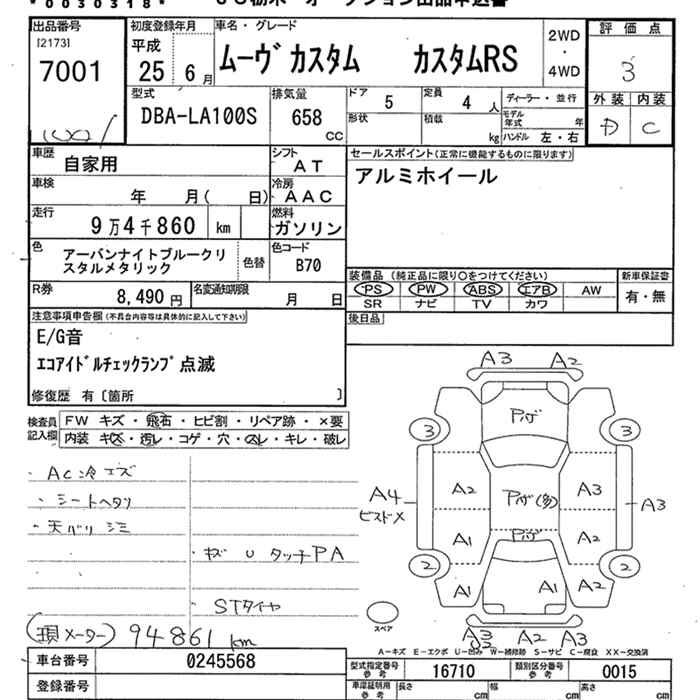 * 0 0 3 0 3 1 8 *
出品番号 初度登録年月 車名・グレード 評価点
[2173] 平成 ムーヴ カスタム カスタムRS 2WD・4WD 3
7001 25年 6月
型式 排気量 ドア 定員 ディーラー・並行 外装 内装
DBA-LA100S 658 CC 5 4人 モデル年式 年 D C
形状 積載 kg ハンドル 左・右
車歴 自家用 シフト AT セールスポイント(正常に機能するものに限ります)
車検 年 月( 日) 冷房 AAC アルミホイール
走行 9万4千860 km 燃料 ガソリン
色 アーバンナイトブルークリ 色替 色コード
スタルメタリック B70
装備品(純正品に限り○をつけてください) 新車保証書
PS PW ABS エアB AW 有・無
R券 8,490円 名変通知期限 月 日 SR ナビ TV カワ
注意事項申告欄(不具合内容等は具体的に記入して下さい) 後日品
E/G音
エコアイドルチェックランプ点滅
修復歴 有〔箇所 〕
検査員記入欄 FW キズ・飛石・ヒビ割・リペア跡・×要
内装 キズ・汚レ・コゲ・穴・スレ・キレ・破レ
・AC冷エズ
・シートヘタリ
・天バリシミ
・キズ U タッチPA
STタイヤ
(現メーター) 94861 km
A3 A2
Pキズ
3 3
A2 Pキズ(多) A3
A4 A3
ビスドメ
A1 Pキズ A2
2 2
A1 A1 A2
スペア
A3 A2 A3
A2
A-キズ E-エクボ U-凹み W-補修跡 S-サビ C-腐食 XX-交換済
車台番号 0245568 型式指定番号 参考 16710 類別区分番号 参考 0015
登録番号 車庫証明用 参考 長さ cm 幅 cm 高さ cm